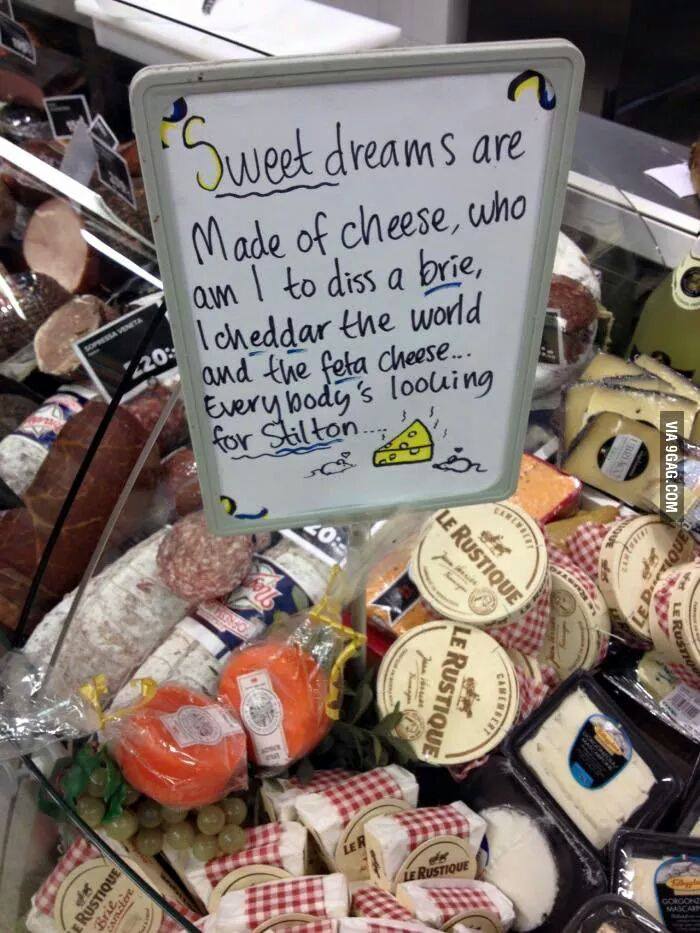 Sweet dreams are
Made of cheese, who
am I to diss a brie,
I cheddar the world
and the feta cheese...
Everybody's looking
for Stilton....
SOPRESSA VENETA
20
VIA 9GAG.COM
CAMEMBERT
LE RUSTIQUE
CAMEMBERT
LE RUSTIQUE
LE RUSTIQUE
LE R
LE RUSTIQUE
RUSTIQUE
Brie
GORGONZ
MASCARP